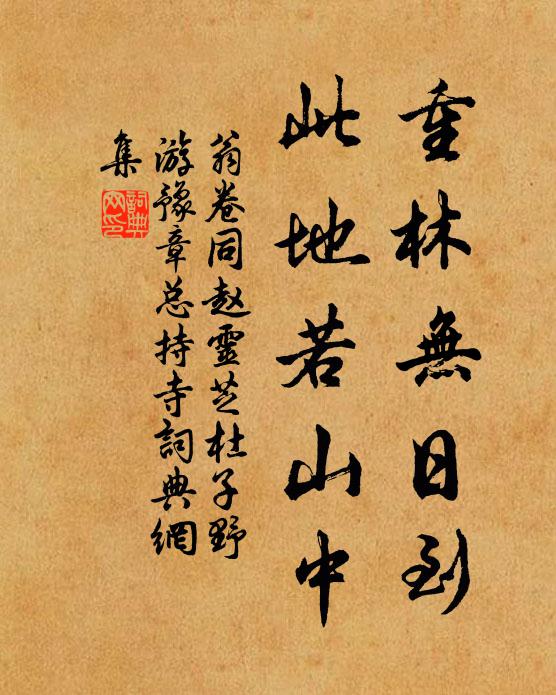 重林無日到
此地若山中
翁卷同赵靈芝杜子野
游豫章总持寺詞典網
集
詞典
网印